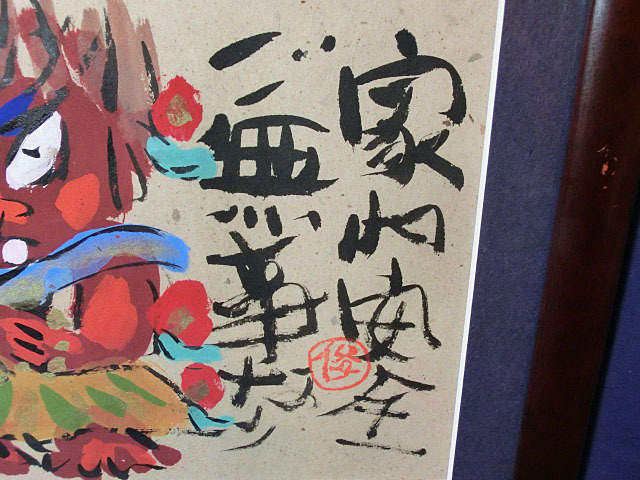 家内安全
ご無事なり
俊